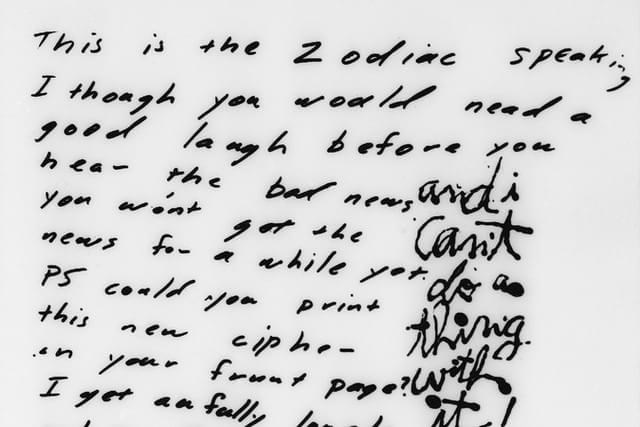 This is the Zodiac speaking
I though you would need a
good laugh before you
hear the bad news
you won't get the
news for a while yet.
PS could you print
this new cipher
in your frunt page?
I get awfully
and i
can't
do a
thing
with
it!